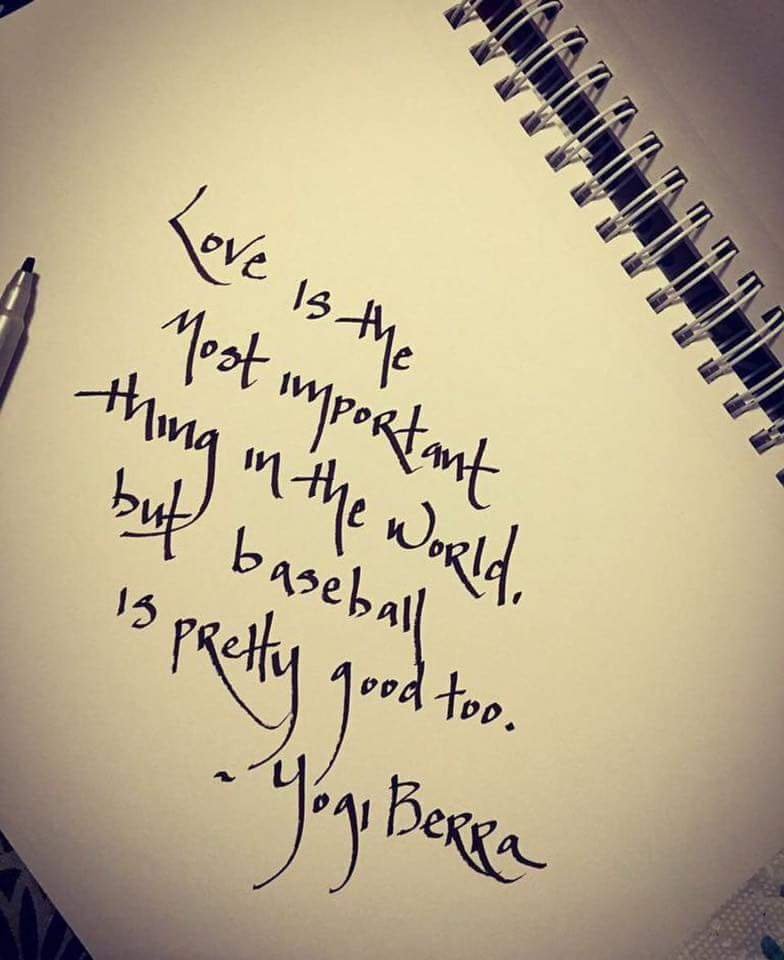 Love is the
Most important
thing in the World,
but baseball
is pretty good too.
~ Yogi Berra